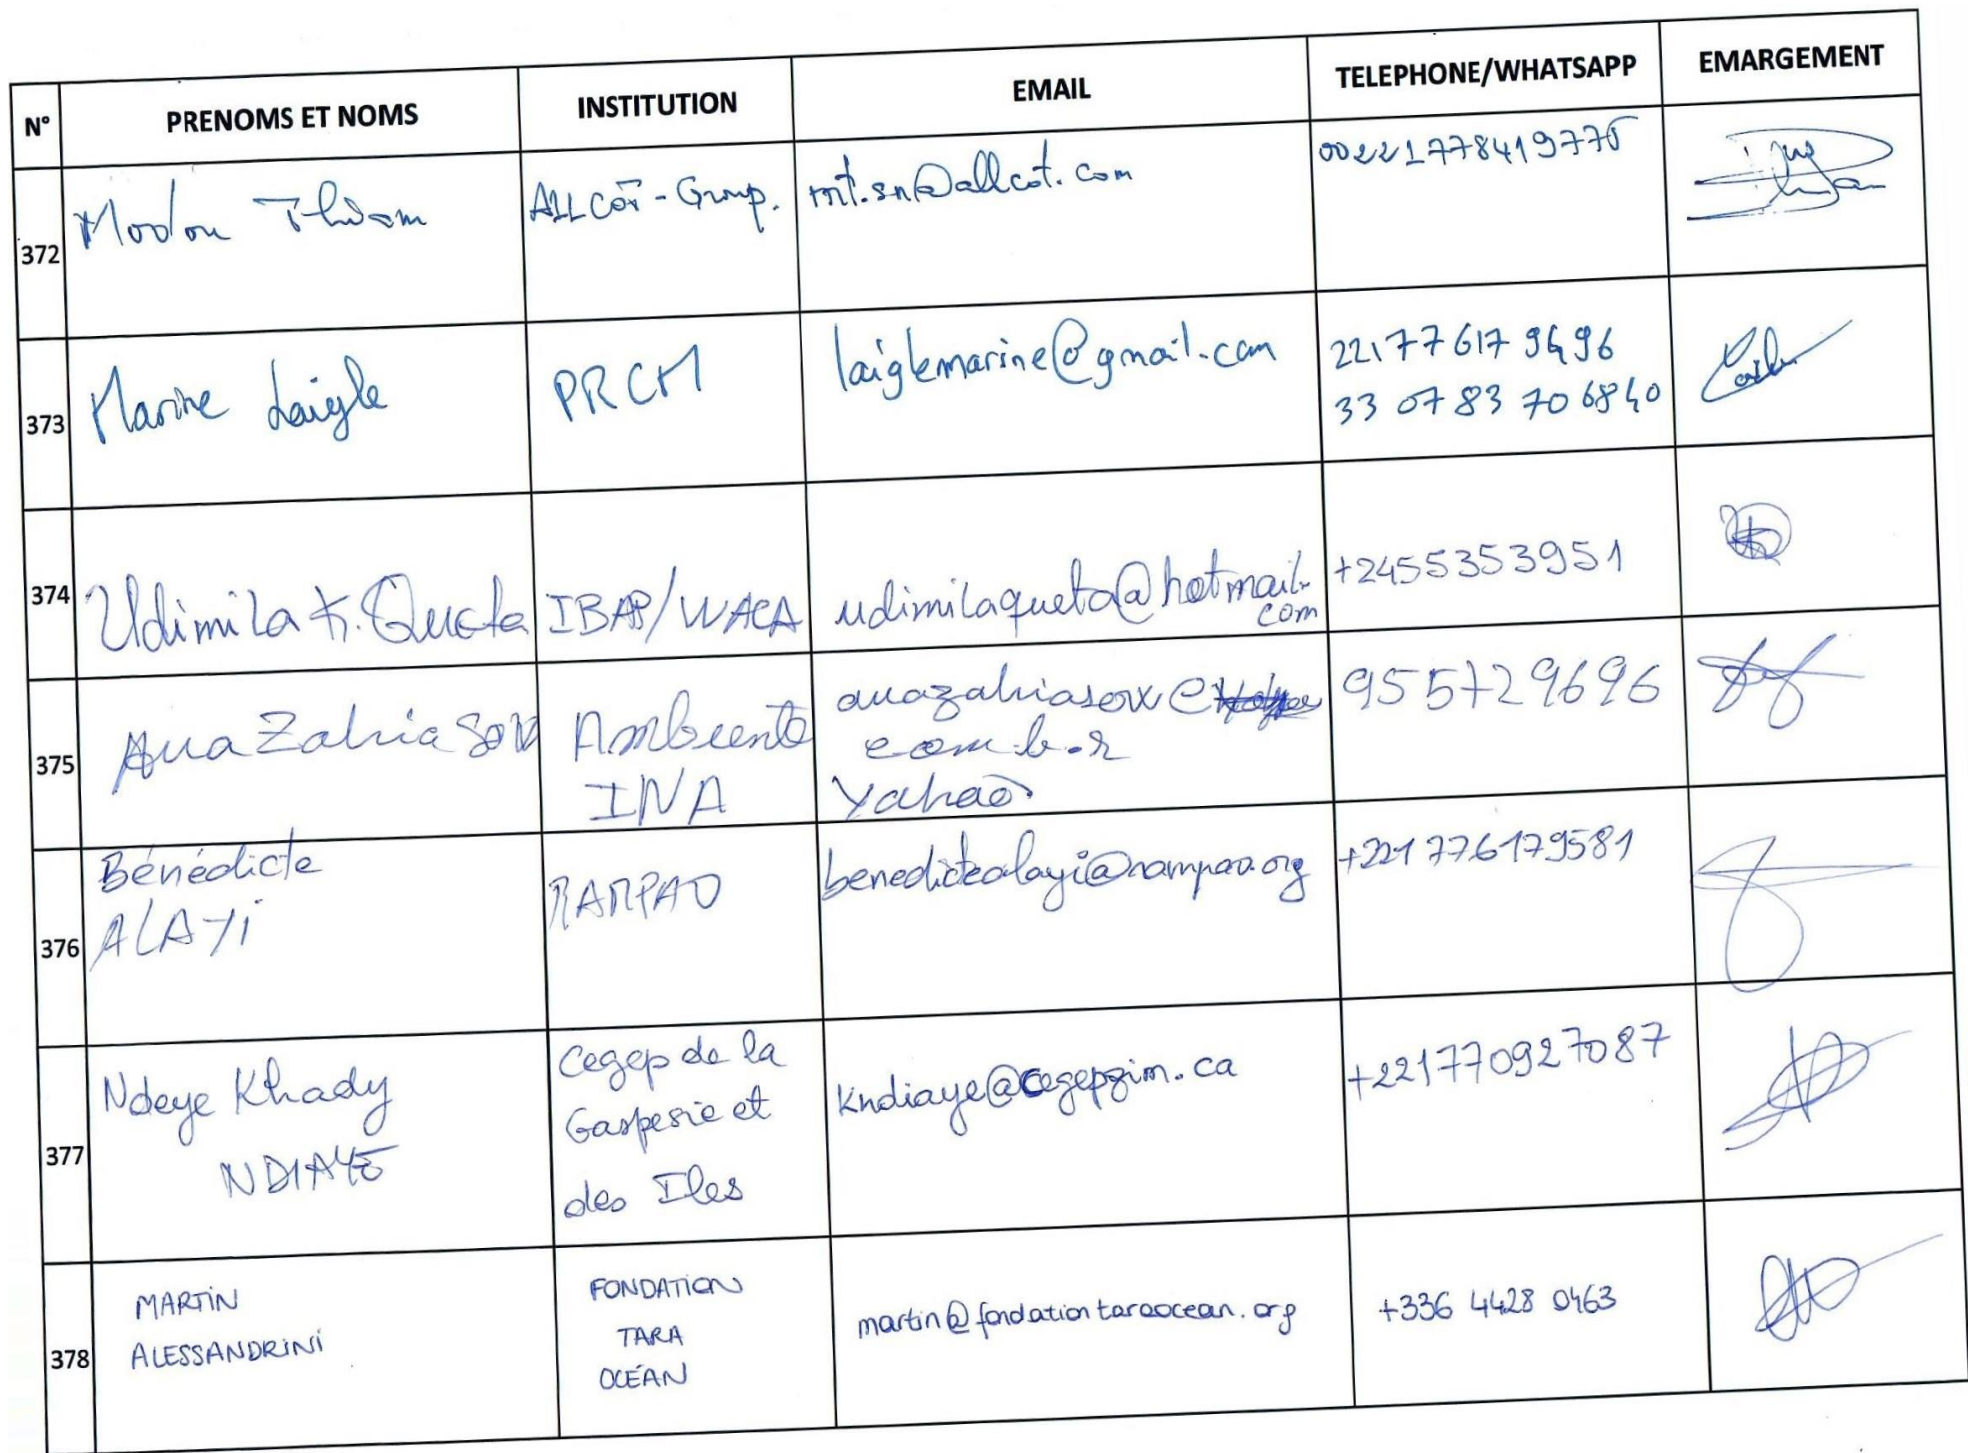 N° PRENOMS ET NOMS INSTITUTION EMAIL TELEPHONE/WHATSAPP EMARGEMENT
372 Modou Thiam ALLCOT-Group. mt.sn@allcot.com 00221778419775
373 Marine Laigle PRCM laiglemarine@gmail.com 221 77 617 96 96
33 07 83 70 68 40
374 Udimila K. Queta IBAP/WACA udimilaqueta@hotmail.
com
+2455353951
375 Ana Zahia Ambiente anazahia 955729696
INA com.br
Yahoo
376 Bénédicte
ALAYI
RAMPAO benedictealayi@rampao.org +221 776179581
377 Ndeye Khady
NDIAYE
Cegep de la
Gaspesie et
des Iles
kndiaye@cegepgim.ca +221770927087
378 MARTIN
ALESSANDRINI
FONDATION
TARA
OCÉAN
martin@fondationtaraocean.org +336 4428 0463